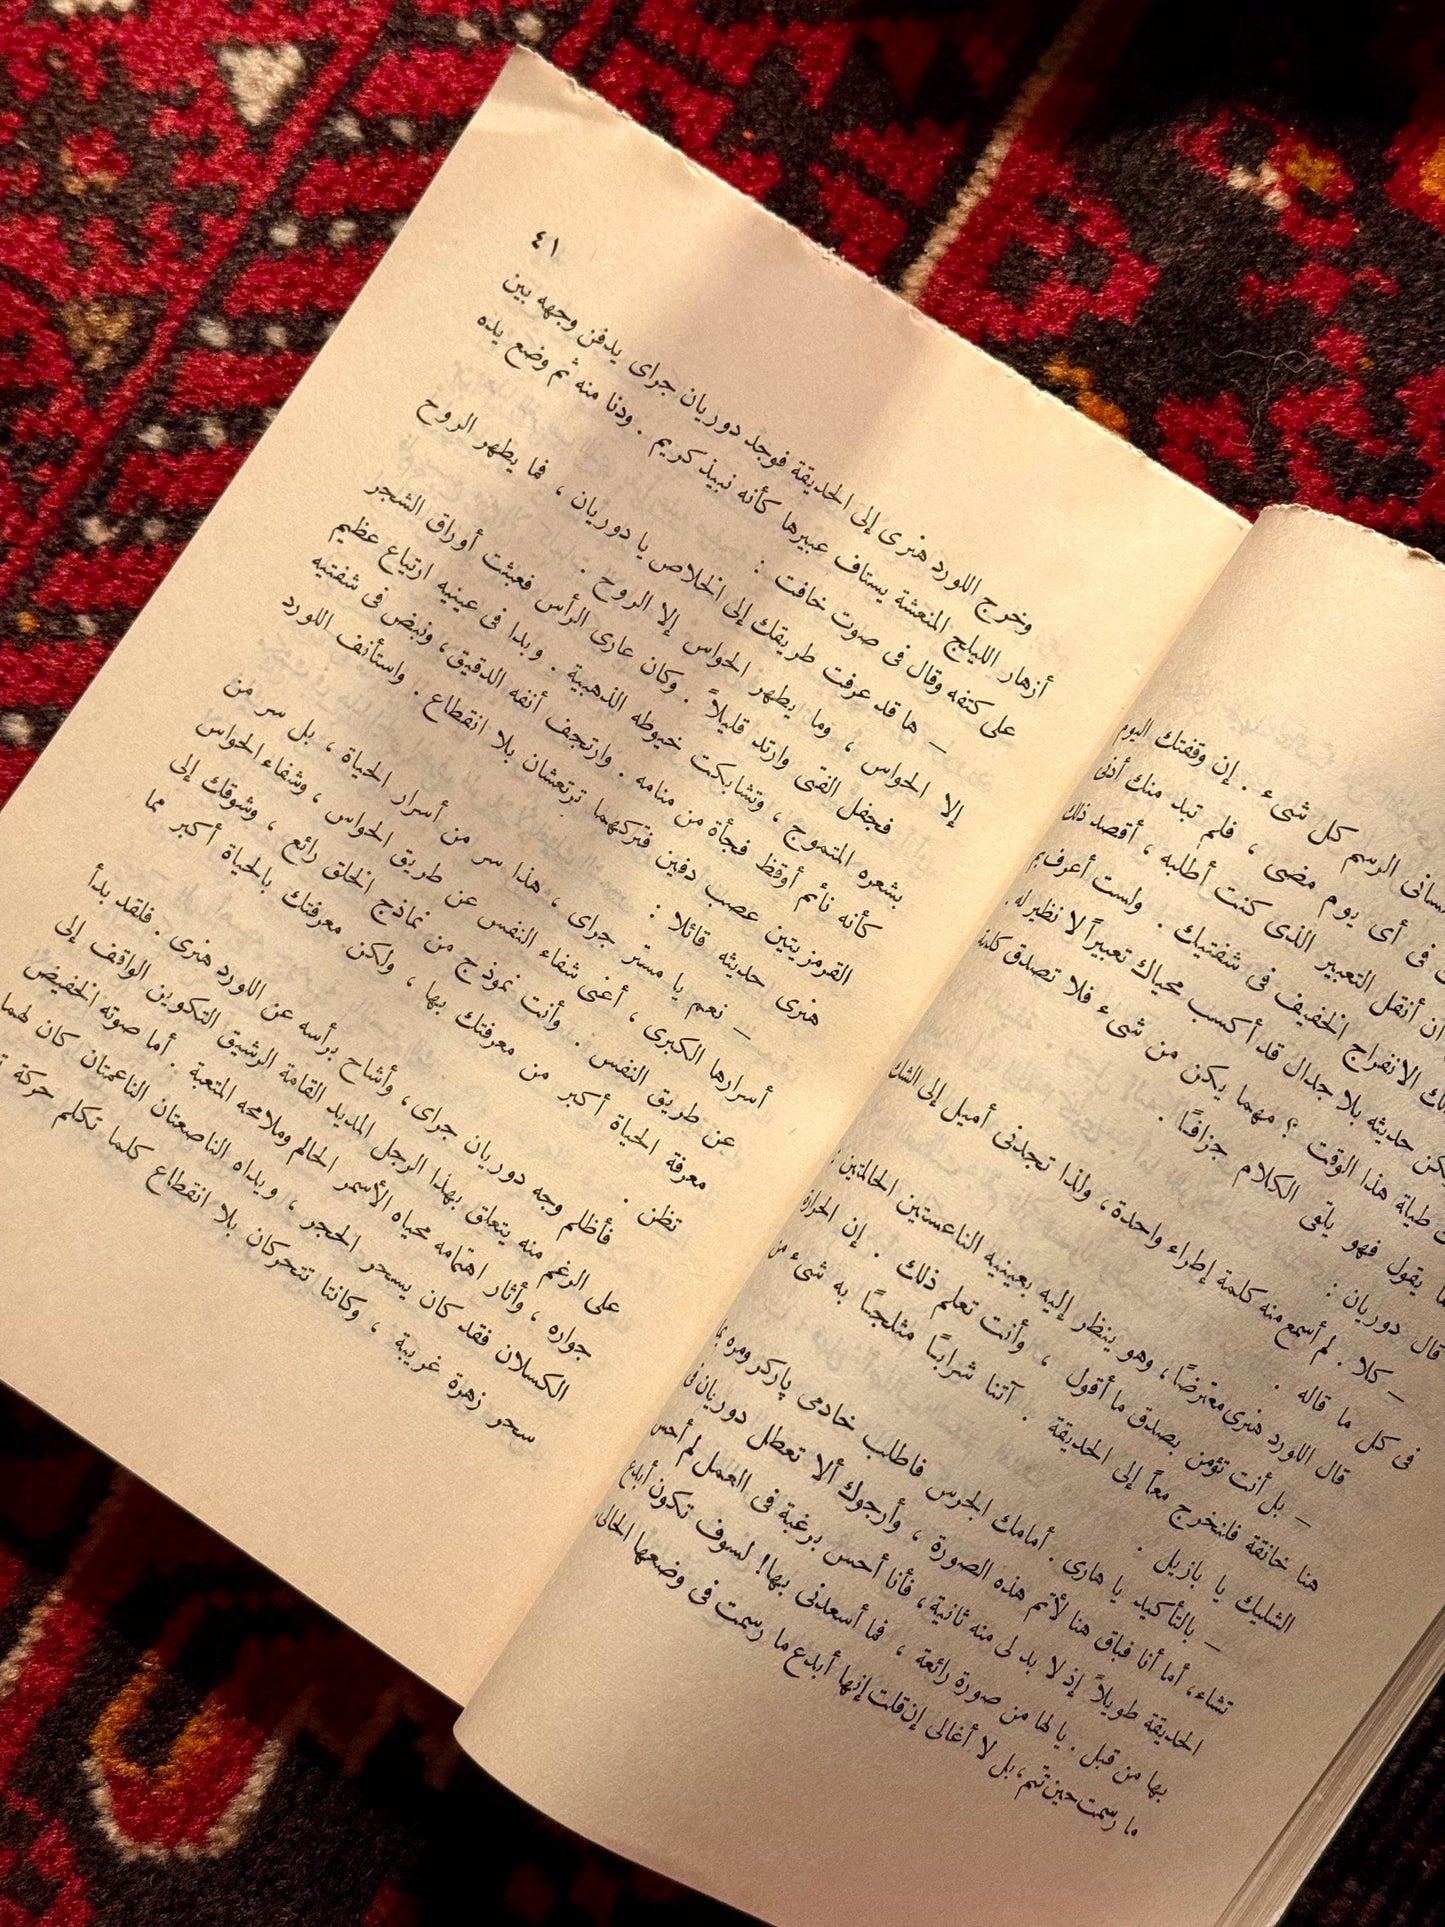 الرسم كل شىء . إن وقفتك اليوم
فى أى يوم مضى ، فلم تبد منك أدنى
أن أنقل التعبير الذى كنت أطلبه ، أقصد ذلك
الانفراج الخفيف فى شفتيك . ولست أعرف
حديثه بلا جدال قد أكسب محياك تعبيراً لا نظير له .
طيلة هذا الوقت ؟ مهما يكن من شىء فلا تصدق كلمة
يقول فهو يلقى الكلام جزافاً .
قال دوريان :
— كلا . لم أسمع منه كلمة إطراء واحدة ، ولذا تجدنى أميل إلى الشك
فى كل ما قاله .
قال اللورد هنرى معترضاً ، وهو ينظر إليه بعينيه الناعستين الحالمتين :
— بل أنت تؤمن بصدق ما أقول ، وأنت تعلم ذلك . إن الحرارة
هنا خانقة فلنخرج معاً إلى الحديقة . آتنا شراباً مثلجاً به شىء من
الشليك يا بازيل .
— بالتأكيد يا هارى . أمامك الجرس فاطلب خادمى پاركر ومره بما
تشاء ، أما أنا فباق هنا لأتم هذه الصورة ، وأرجوك ألا تعطل دوريان فى
الحديقة طويلاً إذ لا بد لى منه ثانية ، فأنا أحس برغبة فى العمل لم أحس
بها من قبل . يا لها من صورة رائعة ، فما أسعدنى بها ! لسوف تكون أبدع
ما رسمت حين تتم ، بل لا أغالى إن قلت إنها أبدع ما رسمت فى وضعها الحالى
٤١
وخرج اللورد هنرى إلى الحديقة فوجد دوريان جراى يدفن وجهه بين
أزهار الليلج المنعشة يستاف عبيرها كأنه نبيذ كريم . ودنا منه ثم وضع يده
على كتفه وقال فى صوت خافت :
— ها قد عرفت طريقك إلى الخلاص يا دوريان ، فما يطهر الروح
إلا الحواس ، وما يطهر الحواس إلا الروح .
فجفل الفتى وارتد قليلاً . وكان عارى الرأس فعبثت أوراق الشجر
بشعره المتموج ، وتشابكت خيوطه الذهبية . وبدا فى عينيه ارتياع عظيم
كأنه نأم أوقظ فجأة من منامه . وارتجف أنفه الدقيق ، ونبض فى شفتيه
القرمزيتين عصب دفين فتركهما ترتعشان بلا انقطاع . واستأنف اللورد
هنرى حديثه قائلا :
— نعم يا مستر جراى ، هذا سر من أسرار الحياة ، بل سر من
أسرارها الكبرى ، أعنى شفاء النفس عن طريق الحواس ، وشفاء الحواس
عن طريق النفس . وأنت نموذج من نماذج الخلق رائع ، وشوقك إلى
معرفة الحياة أكبر من معرفتك بها ، ولكن معرفتك بالحياة أكبر مما
تظن .
فأظلم وجه دوريان جراى ، وأشاح برأسه عن اللورد هنرى . فلقد بدأ
على الرغم منه يتعلق بهذا الرجل المديد القامة الرشيق التكوين الواقف إلى
جواره ، وأثار اهتمامه محياه الأسمر الحالم وملامحه المتعبة . أما صوته الخفيض
الكسلان فقد كان يسحر الحجر ، ويداه الناصعتان الناعمتان كان لهما
سحر زهرة غريبة ، وكانتا تتحركان بلا انقطاع كلما تكلم حركة